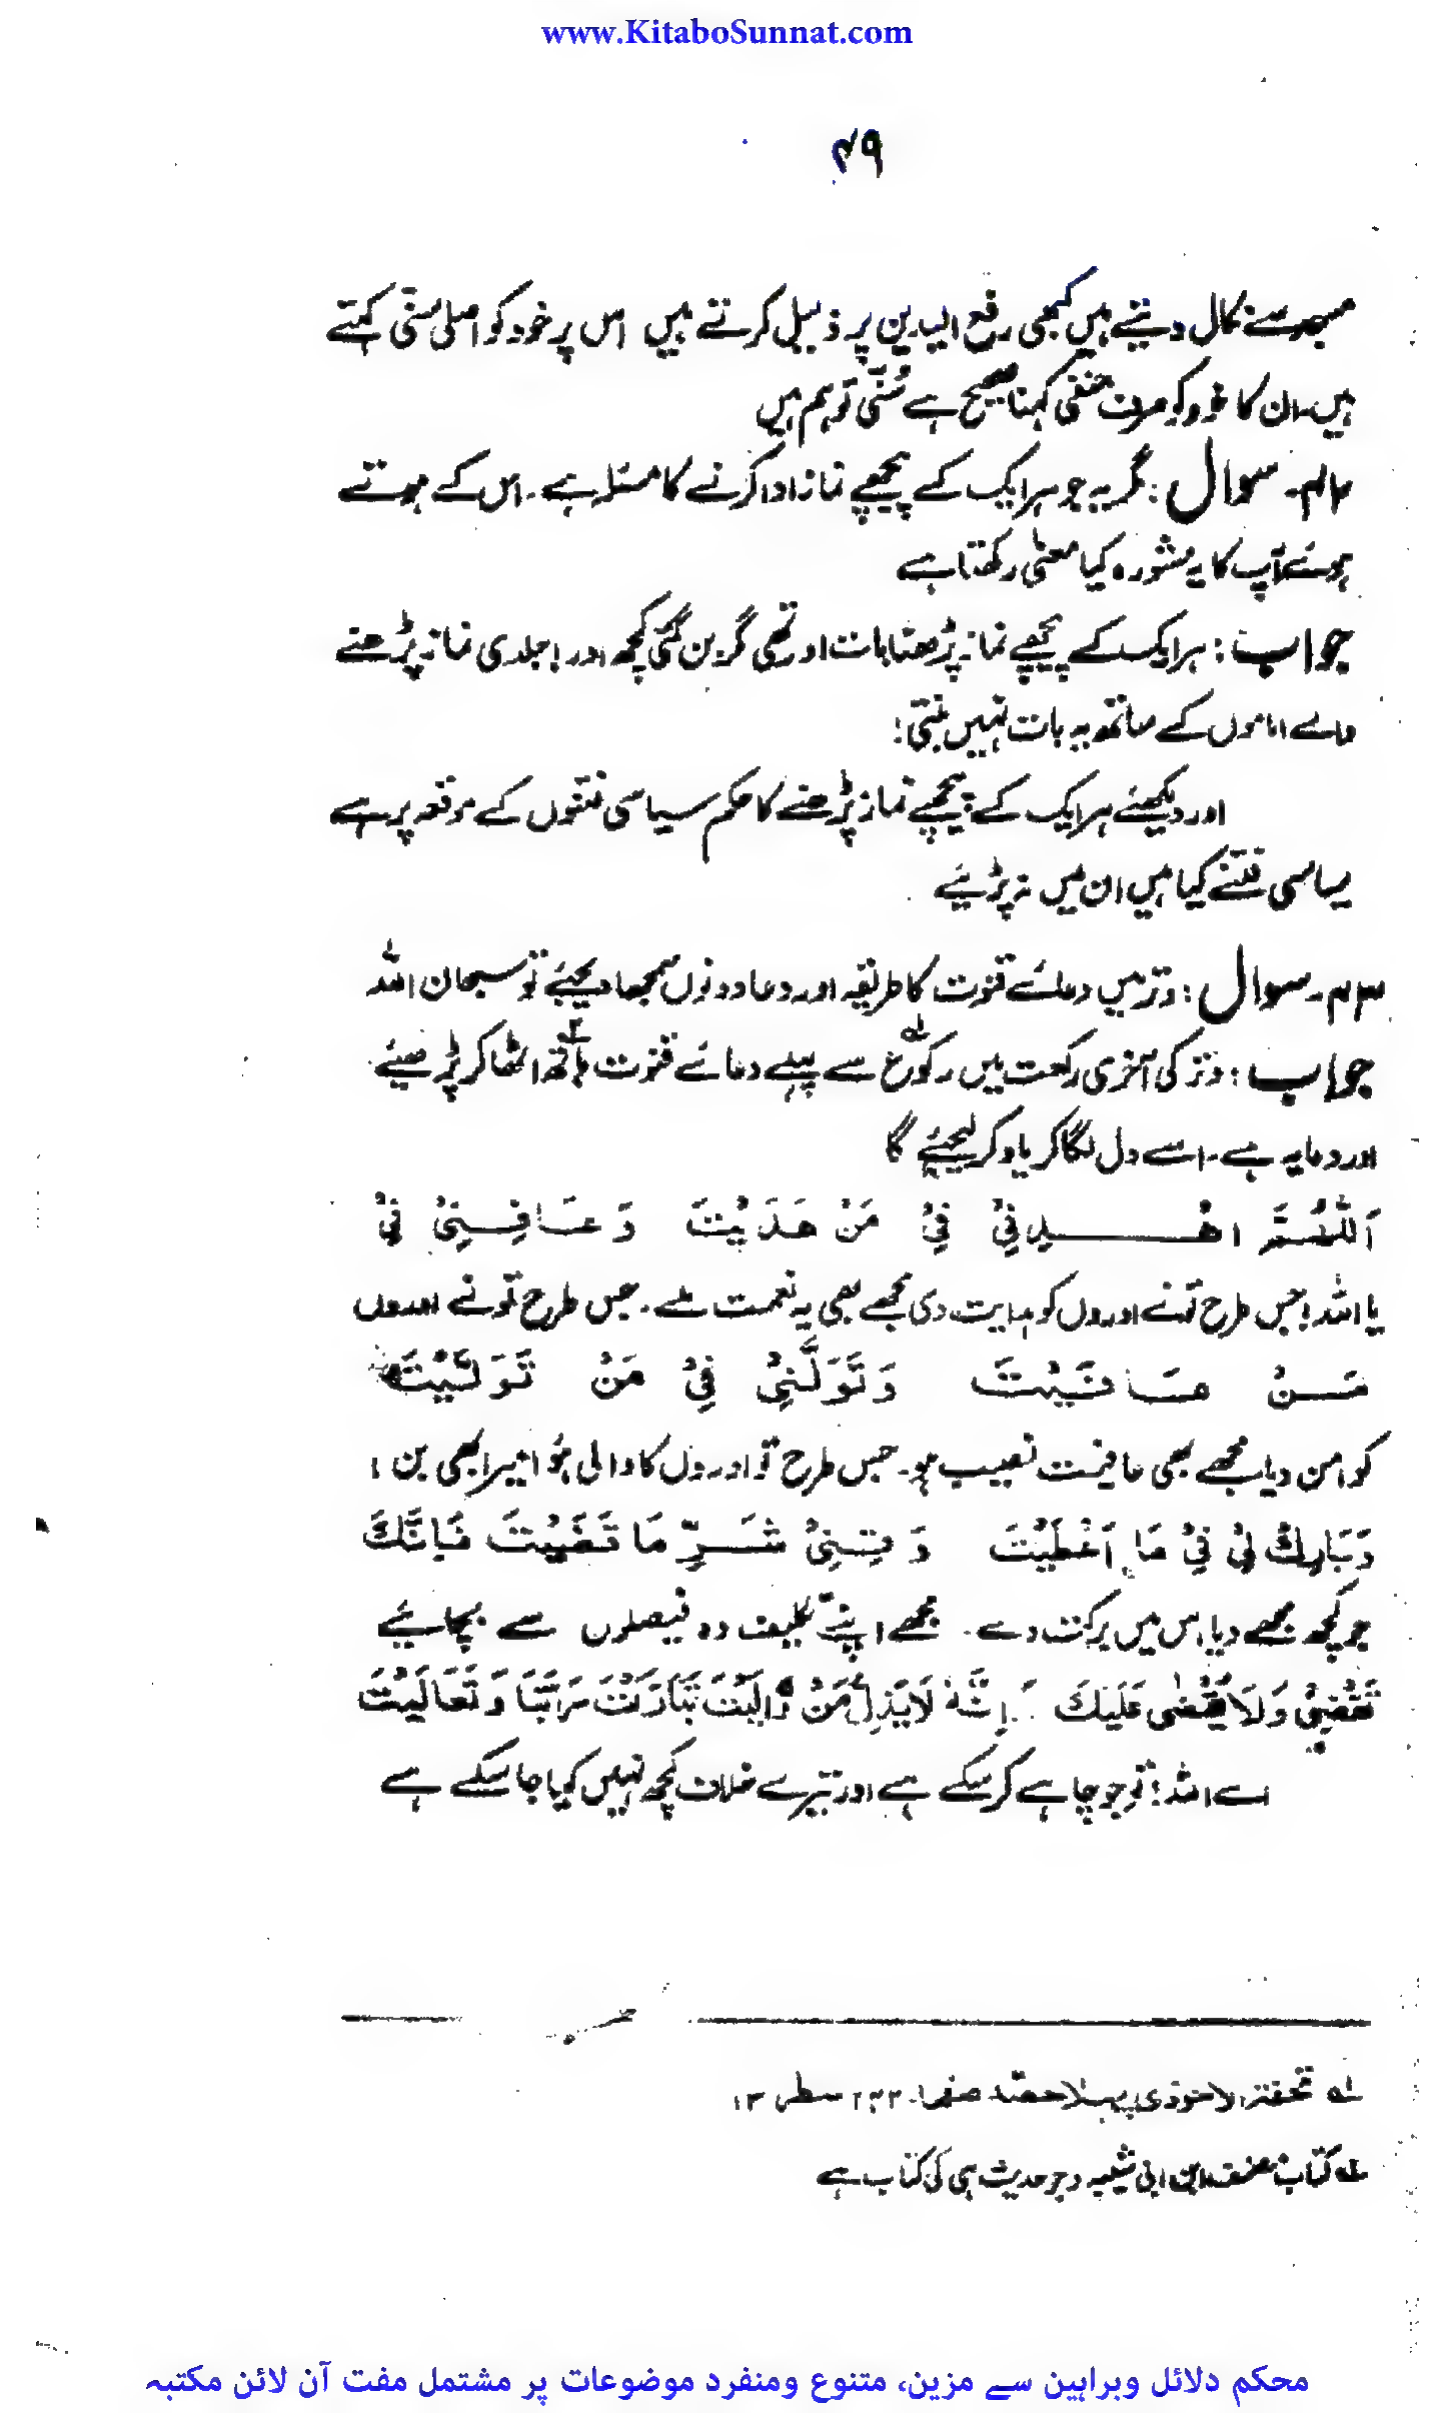 www.KitaboSunnat.com
۴۹
مسجد سے نکال دیتے ہیں کبھی رفع الیدین پر ذلیل کرتے ہیں اس پر خود کو اصلی سنّی کہتے
ہیں۔ ان کا خود کو صرف حنفی کہنا صحیح ہے سُنّی تو ہم ہیں
۴۲۔ سوال : مگر یہ جو ہر ایک کے پیچھے نماز ادا کرنے کا مسئلہ ہے۔ اس کے ہوتے
ہوئے آپ کا یہ مشورہ کیا معنٰی رکھتا ہے
جواب : ہر ایک کے پیچھے نماز پڑھنا بات اور تھی مگر بن گئی کچھ اور ! جلدی نماز پڑھنے
والے اماموں کے ساتھ یہ بات نہیں بنتی !
اور دیکھئے ہر ایک کے پیچھے نماز پڑھنے کا حکم سیاسی فتنوں کے موقعہ پر ہے
سیاسی فتنے کیا ہیں ان میں نہ پڑئیے
۴۳۔ سوال : وتر میں دعائے قنوت کا طریقہ اور دعا دونوں سمجھا دیجئے تو سبحان اللہ
جواب : وتر کی آخری رکعت میں رکوع لہ سے پہلے دعائے قنوت ہاتھ ۲ اٹھا کر پڑھئیے
اور دعا یہ ہے۔ اسے دل لگا کر یاد کر لیجئیے گا
اَللّٰھُمَّ اھْدِنِیْ فِیْ مَنْ ھَدَیْتَ وَ عَافِنِیْ فِیْ
یا اللہ ! جس طرح تونے اوروں کو ہدایت دی مجھے بھی یہ نعمت ملے۔ جس طرح تونے اوروں
مَنْ عَافَیْتَ وَتَوَلَّنِیْ فِیْ مَنْ تَوَلَّیْتَ
کو امن دیا مجھے بھی عافیت نصیب ہو۔ جس طرح تو اوروں کا والی ہوا میرا بھی بن !
وَبَارِكْ لِیْ فِیْ مَا اَعْطَیْتَ وَ قِنِیْ شَرَّ مَا قَضَیْتَ فَاِنَّكَ
جو کچھ مجھے دیا اس میں برکت دے۔ مجھے اپنے تکلیف دہ فیصلوں سے بچائیے
تَقْضِیْ وَلَا یُقْضٰی عَلَیْكَ اِنَّهٗ لَا یَذِلُّ مَنْ وَّالَیْتَ تَبَارَكْتَ رَبَّنَا وَ تَعَالَیْتَ
اے اللہ ! تو جو چاہے کر سکے ہے اور تیرے خلاف کچھ نہیں کیا جا سکے ہے
لہ تحفۃ الاحوذی پہلا حصّہ صفحہ ۲۴۳ سطر ۱۳
۲ کتاب مصنف ابن ابی شیبہ وجو حدیث ہی کی کتاب ہے
محکم دلائل وبراہین سے مزین، متنوع ومنفرد موضوعات پر مشتمل مفت آن لائن مکتبہ